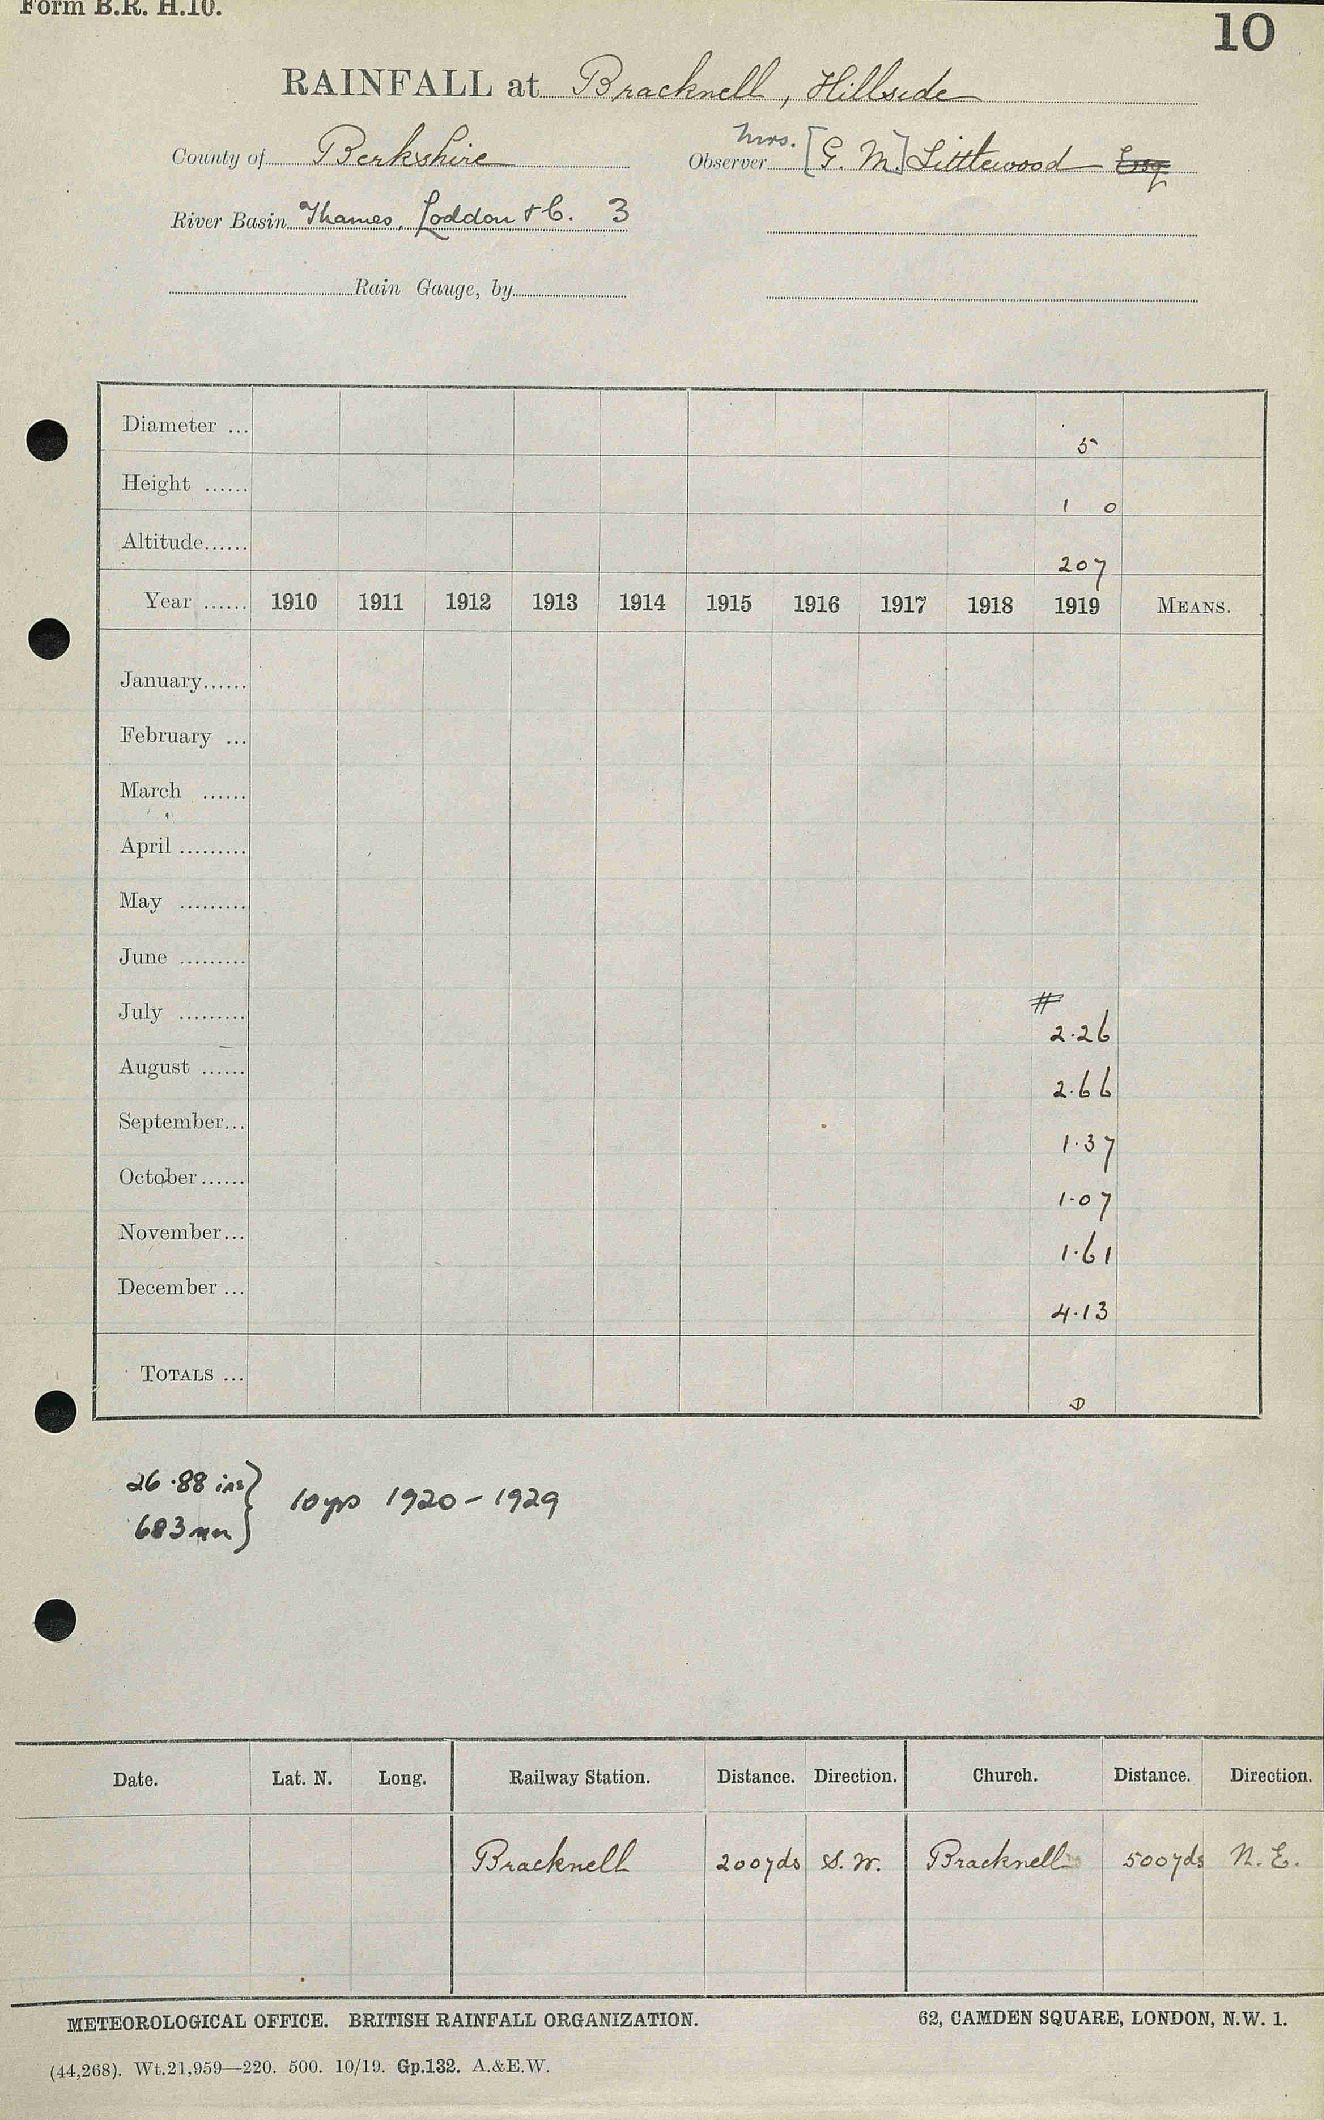 Form B.R. H.10.
10
RAINFALL at Bracknell, Hillside
County of Berkshire
Observer Mrs. [G. M.] Littlewood Esq
River Basin Thames, Loddon &c. 3
Rain Gauge, by
Diameter ... 5
Height ...... 1 0
Altitude...... 207
Year ...... 1910 1911 1912 1913 1914 1915 1916 1917 1918 1919 MEANS.
January......
February ...
March ......
April .........
May .........
June .........
#
July ......... 2.26
August ...... 2.66
September... 1.37
October...... 1.07
November... 1.61
December ... 4.13
TOTALS ...
26.88 ins } 10 yrs 1920-1929
683 mm
Date. Lat. N. Long. Railway Station. Distance. Direction. Church. Distance. Direction.
Bracknell 200yds S.W. Bracknell 500yds N.E.
METEOROLOGICAL OFFICE. BRITISH RAINFALL ORGANIZATION. 62, CAMDEN SQUARE, LONDON, N.W. 1.
(44,268). Wt.21,959—220. 500. 10/19. Gp.132. A.&E.W.